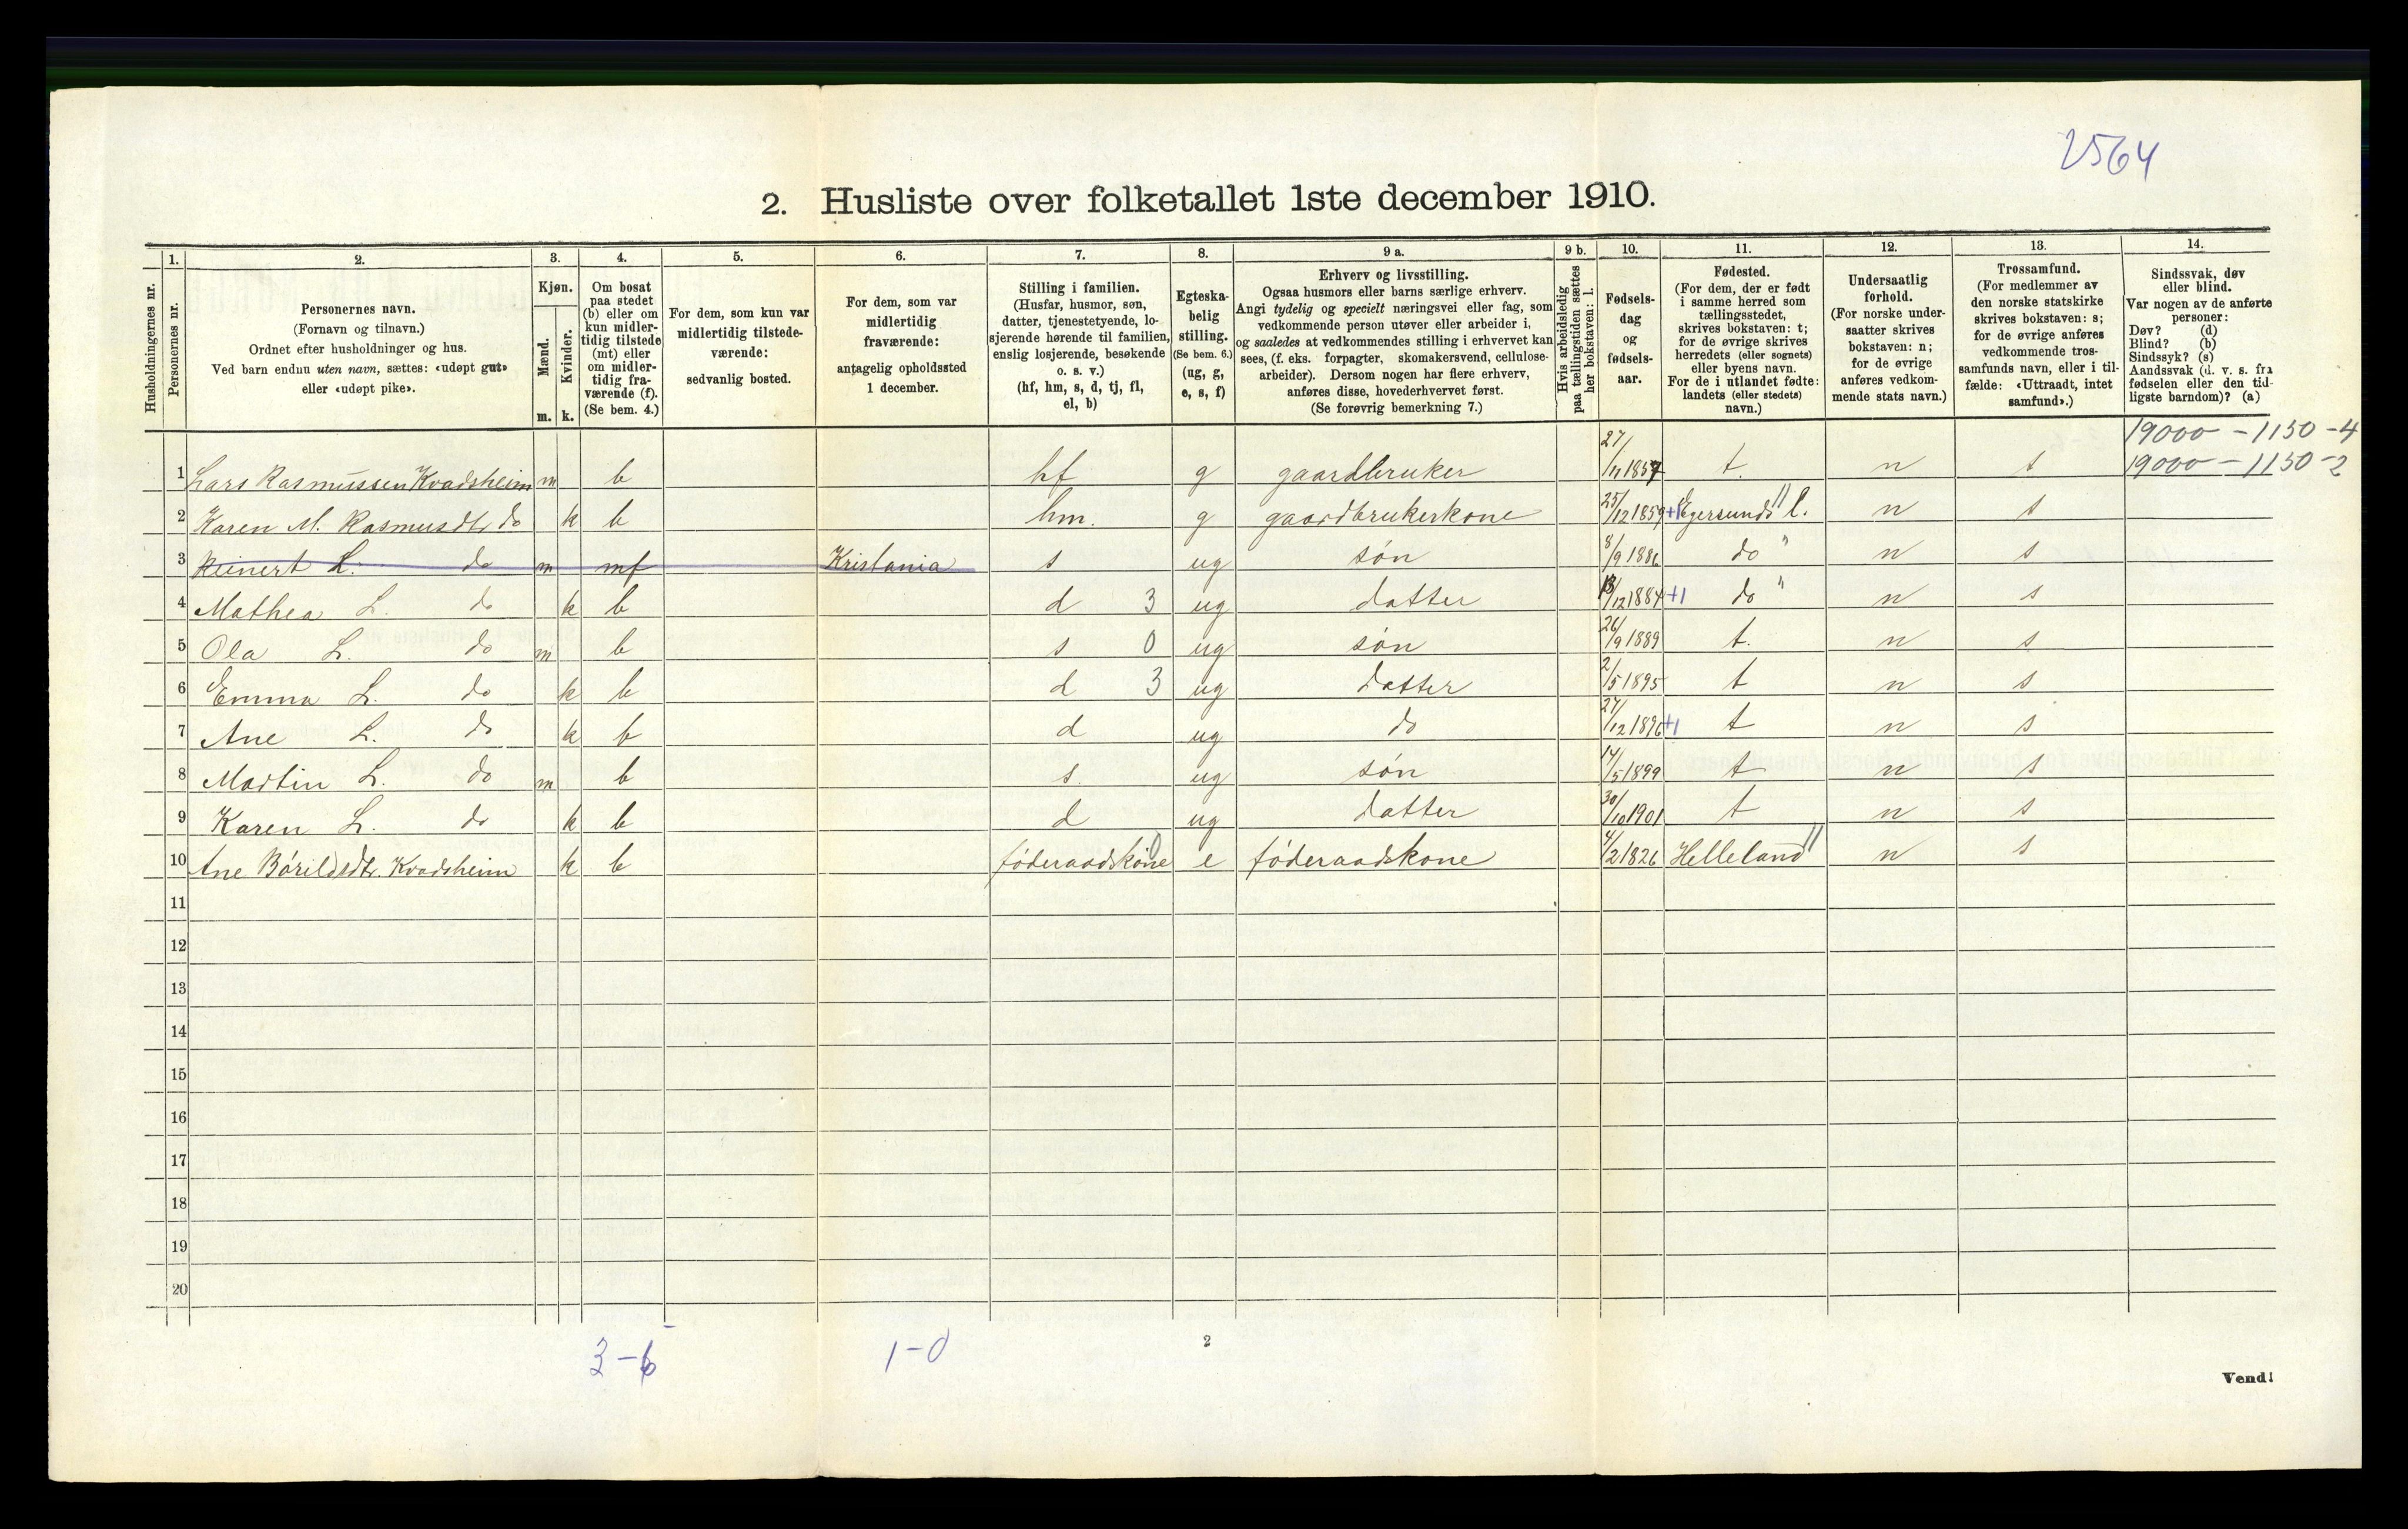 2564
2. Husliste over folketallet 1ste december 1910.
1. 2. 3. 4. 5. 6. 7. 8. 9 a. 9 b. 10. 11. 12. 13. 14.
Husholdningernes nr.
Personernes nr.
Personernes navn.
(Fornavn og tilnavn.)
Ordnet efter husholdninger og hus.
Ved barn endnu uten navn, sættes: «udøpt gut»
eller «udøpt pike».
Kjøn.
Mænd.
m.
Kvinder.
k.
Om bosat
paa stedet
(b) eller om
kun midler-
tidig tilstede
(mt) eller
om midler-
tidig fra-
værende (f).
(Se bem. 4.)
For dem, som kun var
midlertidig tilstede-
værende:
sedvanlig bosted.
For dem, som var
midlertidig
fraværende:
antagelig opholdssted
1 december.
Stilling i familien.
(Husfar, husmor, søn,
datter, tjenestetyende, lo-
sjerende hørende til familien,
enslig losjerende, besøkende
o. s. v.)
(hf, hm, s, d, tj, fl,
el, b)
Egteska-
belig
stilling.
(Se bem. 6.)
(ug, g,
e, s, f)
Erhverv og livsstilling.
Ogsaa husmors eller barns særlige erhverv.
Angi tydelig og specielt næringsvei eller fag, som
vedkommende person utøver eller arbeider i,
og saaledes at vedkommendes stilling i erhvervet kan
sees, (f. eks. forpagter, skomakersvend, cellulose-
arbeider). Dersom nogen har flere erhverv,
anføres disse, hovederhvervet først.
(Se forøvrig bemerkning 7.)
Hvis arbeidsledig
paa tællingstiden sættes
her bokstaven: l.
Fødsels-
dag
og
fødsels-
aar.
Fødested.
(For dem, der er født
i samme herred som
tællingsstedet,
skrives bokstaven: t;
for de øvrige skrives
herredets (eller sognets)
eller byens navn.
For de i utlandet fødte:
landets (eller stedets)
navn.)
Undersaatlig
forhold.
(For norske under-
saatter skrives
bokstaven: n;
for de øvrige
anføres vedkom-
mende stats navn.)
Trossamfund.
(For medlemmer av
den norske statskirke
skrives bokstaven: s;
for de øvrige anføres
vedkommende tros-
samfunds navn, eller i til-
fælde: «Uttraadt, intet
samfund».)
Sindssvak, døv
eller blind.
Var nogen av de anførte
personer:
Døv? (d)
Blind? (b)
Sindssyk? (s)
Aandssvak (d. v. s. fra
fødselen eller den tid-
ligste barndom)? (a)
19000 - 1150 - 4
1 Lars Rasmussen Kvadsheim m b hf g gaardbruker 27/11 1857 t. n s 19000 - 1150 - 2
2 Karen M. Rasmusdtr. do k b hm. g gaardbrukerkone 25/12 1859 +1 Egersunds l. n s
3 Reinert L. do m mf Kristania s ug søn 8/9 1886 do " n s
4 Mathea L. do k b d 3 ug datter 13/12 1884 +1 do " n s
5 Ola L. do m b s 0 ug søn 26/9 1889 t. n s
6 Emma L. do k b d 3 ug datter 2/5 1895 t n s
7 Ane L. do k b d ug do 27/12 1896 +1 t n s
8 Martin L. do m b s. ug søn 14/5 1899 t n s
9 Karen L. do k b d ug datter 30/10 1901 t n s
10 Ane Bårildsdtr. Kvadsheim k b føderaadskone 0 e føderaadskone 4/2 1826 Helleland n s
11
12
13
14
15
16
17
18
19
20
3 - 6 1 - 0 2
Vend!